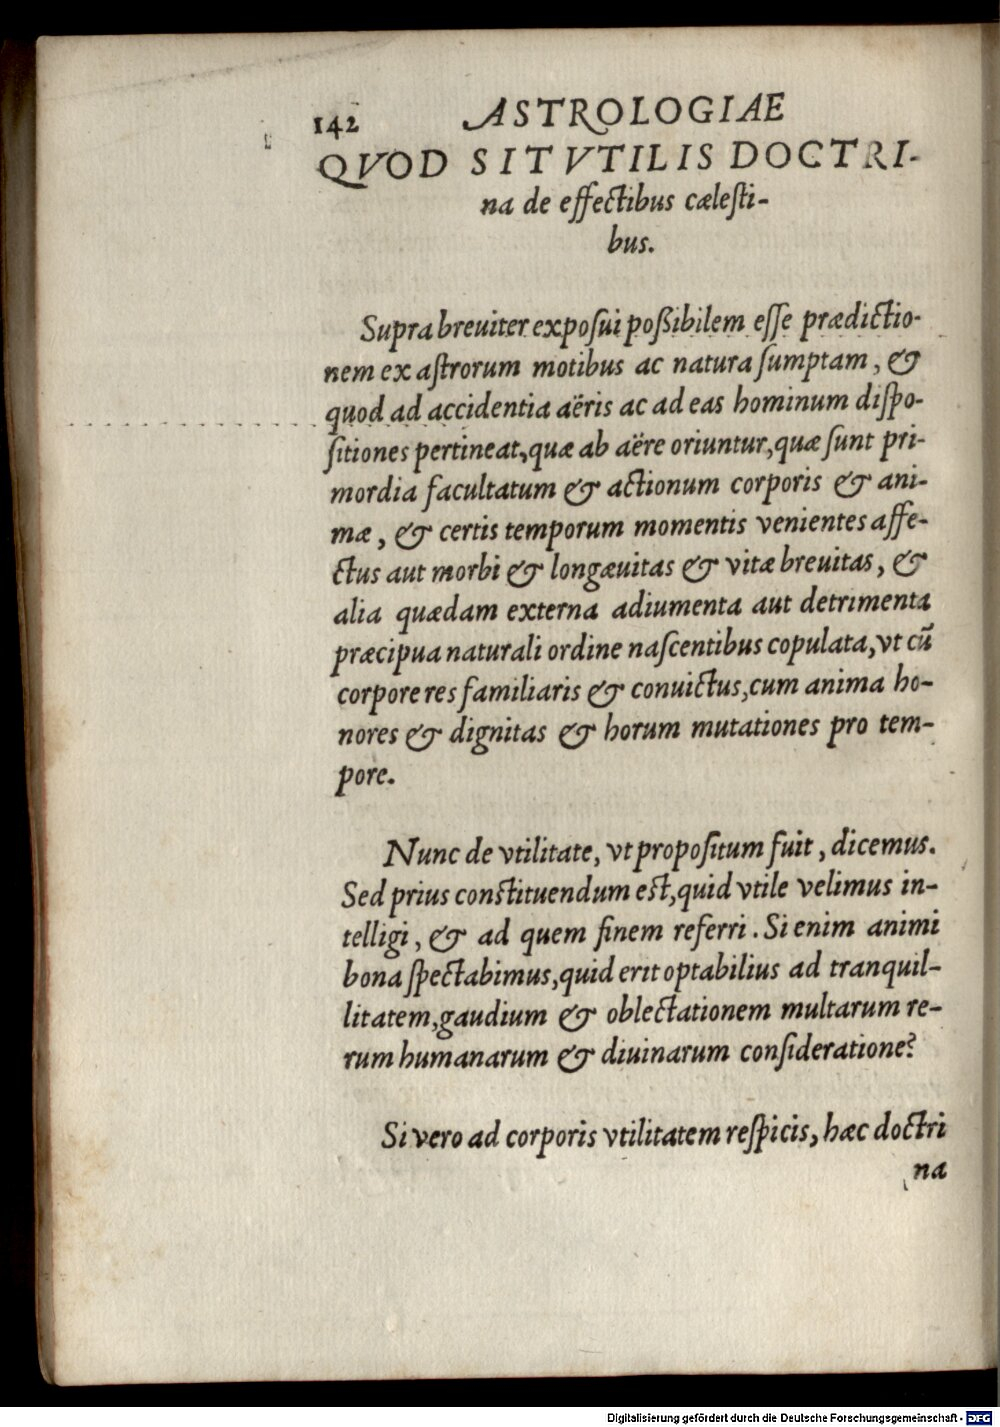 142 ASTROLOGIAE
QVOD SIT VTILIS DOCTRI-
na de effectibus cælesti-
bus.
Supra breuiter exposui poßibilem esse prædictio-
nem ex astrorum motibus ac natura sumptam, &
quod ad accidentia aëris ac ad eas hominum dispo-
sitiones pertineat, quæ ab aëre oriuntur, quæ sunt pri-
mordia facultatum & actionum corporis & ani-
mæ, & certis temporum momentis venientes affe-
ctus aut morbi & longæuitas & vitæ breuitas, &
alia quædam externa adiumenta aut detrimenta
præcipua naturali ordine nascentibus copulata, vt cũ
corpore res familiaris & conuictus, cum anima ho-
nores & dignitas & horum mutationes pro tem-
pore.
Nunc de vtilitate, vt propositum fuit, dicemus.
Sed prius constituendum est, quid vtile velimus in-
telligi, & ad quem finem referri. Si enim animi
bona spectabimus, quid erit optabilius ad tranquil-
litatem, gaudium & oblectationem multarum re-
rum humanarum & diuinarum consideratione?
Si vero ad corporis vtilitatem respicis, hæc doctri
na
Digitalisierung gefördert durch die Deutsche Forschungsgemeinschaft - DFG